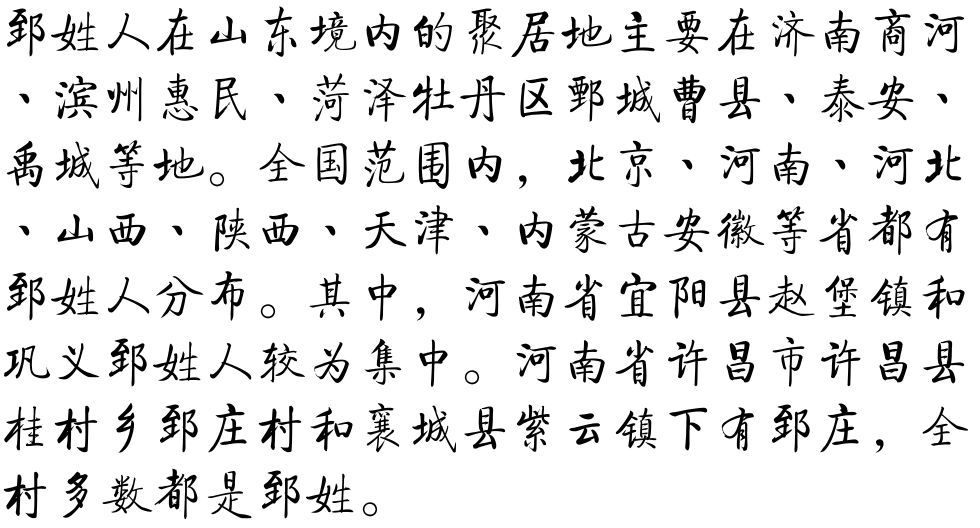 郅姓人在山东境内的聚居地主要在济南商河
、滨州惠民、菏泽牡丹区鄄城曹县、泰安、
禹城等地。全国范围内，北京、河南、河北
、山西、陕西、天津、内蒙古安徽等省都有
郅姓人分布。其中，河南省宜阳县赵堡镇和
巩义郅姓人较为集中。河南省许昌市许昌县
桂村乡郅庄村和襄城县紫云镇下有郅庄，全
村多数都是郅姓。